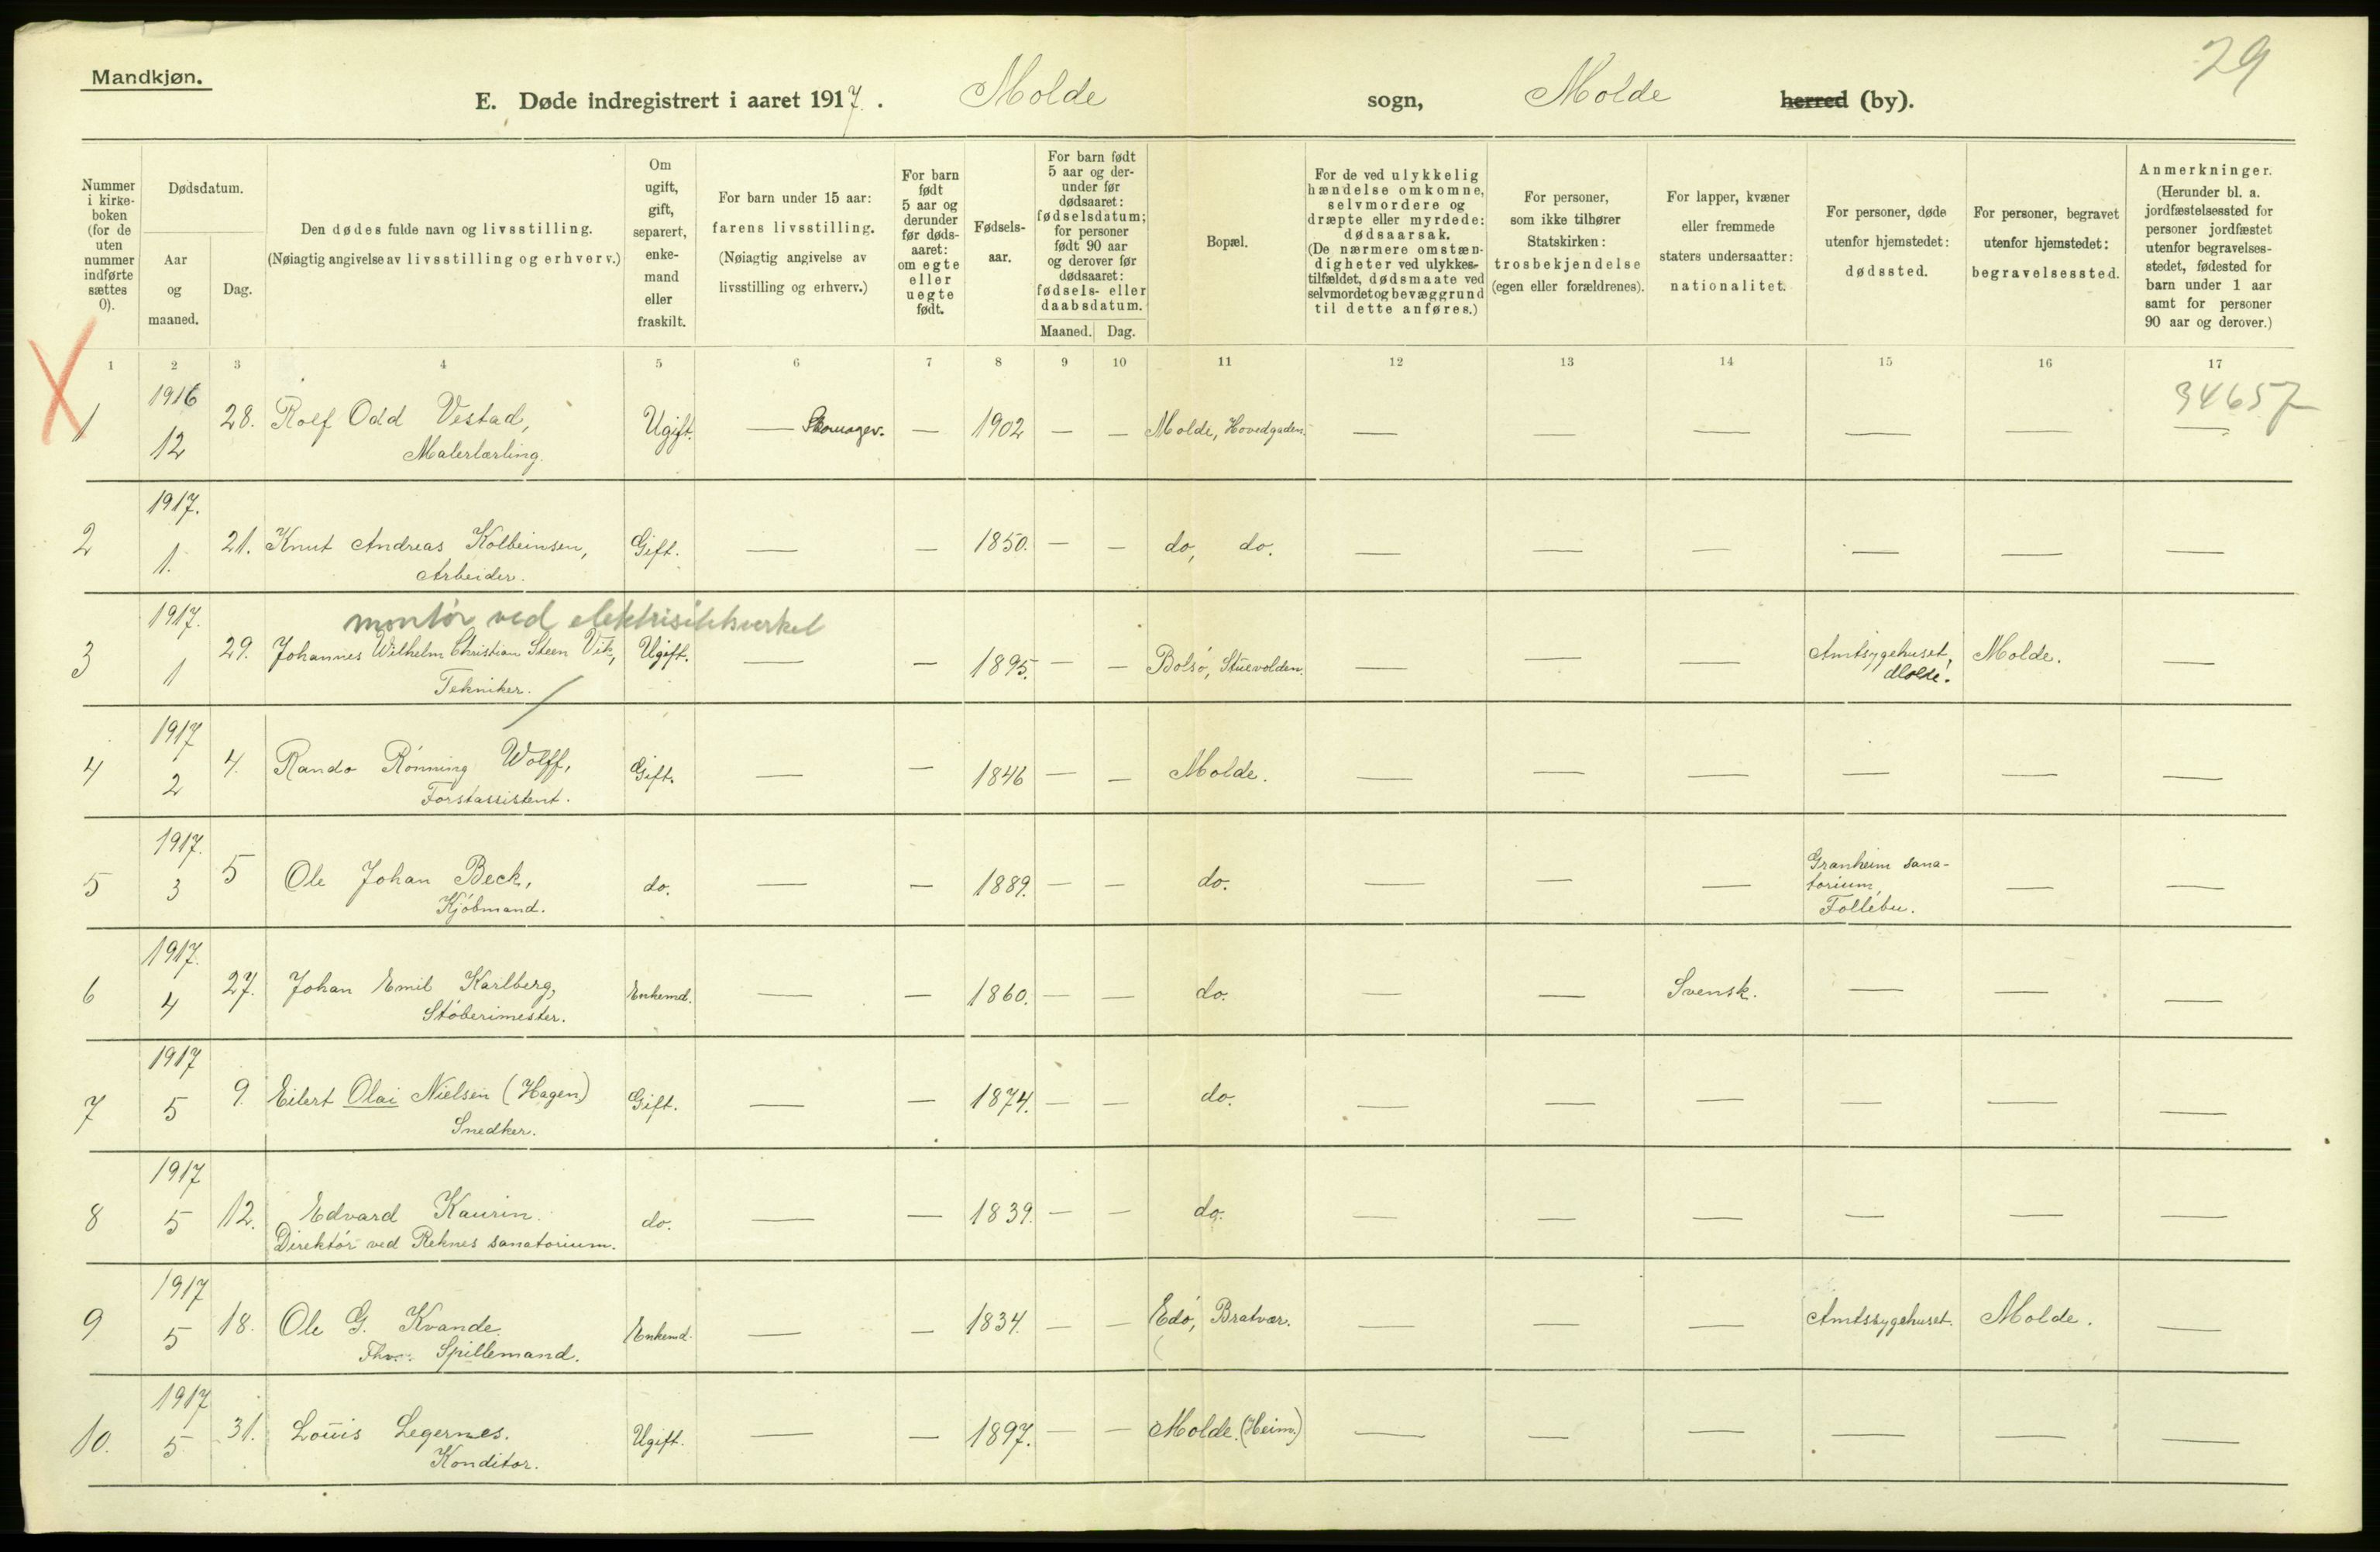 29
Mandkjøn.
E. Døde indregistrert i aaret 1917. Molde sogn, Molde herred (by).
Nummer i kirke-boken (for de uten nummer indførte sættes 0).
Dødsdatum.
Aar og maaned.
Dag.
Den dødes fulde navn og livsstilling.
(Nøiagtig angivelse av livsstilling og erhverv.)
Om ugift, gift, separert, enke-mand eller fraskilt.
For barn under 15 aar: farens livsstilling.
(Nøiagtig angivelse av livsstilling og erhverv.)
For barn født 5 aar og derunder før døds-aaret: om egte eller uegte født.
Fødsels-aar.
For barn født 5 aar og der-under før dødsaaret: fødselsdatum; for personer født 90 aar og derover før dødsaaret: fødsels- eller daabsdatum.
Maaned. Dag.
Bopæl.
For de ved ulykkelig hændelse omkomne, selvmordere og dræpte eller myrdede: dødsaarsak.
(De nærmere omstæn-digheter ved ulykkes-tilfældet, dødsmaate ved selvmordet og bevæggrund til dette anføres.)
For personer, som ikke tilhører Statskirken: trosbekjendelse (egen eller forældrenes).
For lapper, kvæner eller fremmede staters undersaatter: nationalitet.
For personer, døde utenfor hjemstedet: dødssted.
For personer, begravet utenfor hjemstedet: begravelsessted.
Anmerkninger.
(Herunder bl. a. jordfæstelsessted for personer jordfæstet utenfor begravelses-stedet, fødested for barn under 1 aar samt for personer 90 aar og derover.)
1 2 3 4 5 6 7 8 9 10 11 12 13 14 15 16 17
34657
1 1916 12 28. Rolf Odd Vestad, Malerlærling. Ugift. — Skomager. — 1902 — — Molde, Hovedgaden. — — — — — —
2 1917. 1. 21. Knut Andreas Kolbeinsen, Arbeider. Gift. — — 1850. — — do, do. — — — — — —
montør ved elektrisitetsverket
3 1917. 1 29. Johannes Wilhelm Christian Steen Vik, Tekniker. Ugift. — — 1895. — — Bolsø, Stuevolden. — — — Amtsygehuset, Molde. Molde. —
4 1917 2 4. Rando Rønning Wolff, Forstassistent. Gift. — — 1846 — — Molde. — — — — — —
5 1917. 3 5 Ole Johan Beck, Kjøbmand. do. — — 1889. — — do. — — — Granheim sana-torium, Follebu. — —
6 1917. 4 27. Johan Emil Karlberg, Støberimester. Enkemd. — — 1860. — — do. — — Svensk. — — —
7 1917 5 9. Eilert Olai Nielsen (Hagen) Snedker. Gift. — — 1874. — — do. — — — — — —
8 1917 5 12. Edvard Kaurin. Direktør ved Reknes sanatorium. do. — — 1839. — — do. — — — — — —
9 1917 5 18. Ole G. Kvande. Fhv. Spillemand. Enkemd. — — 1834. — — Edø, Bratvær. — — — Amtssygehuset. Molde. —
10. 1917 5 31. Louis Legernes. Konditor. Ugift. — — 1897. — — Molde. (Heim.) — — — — — —